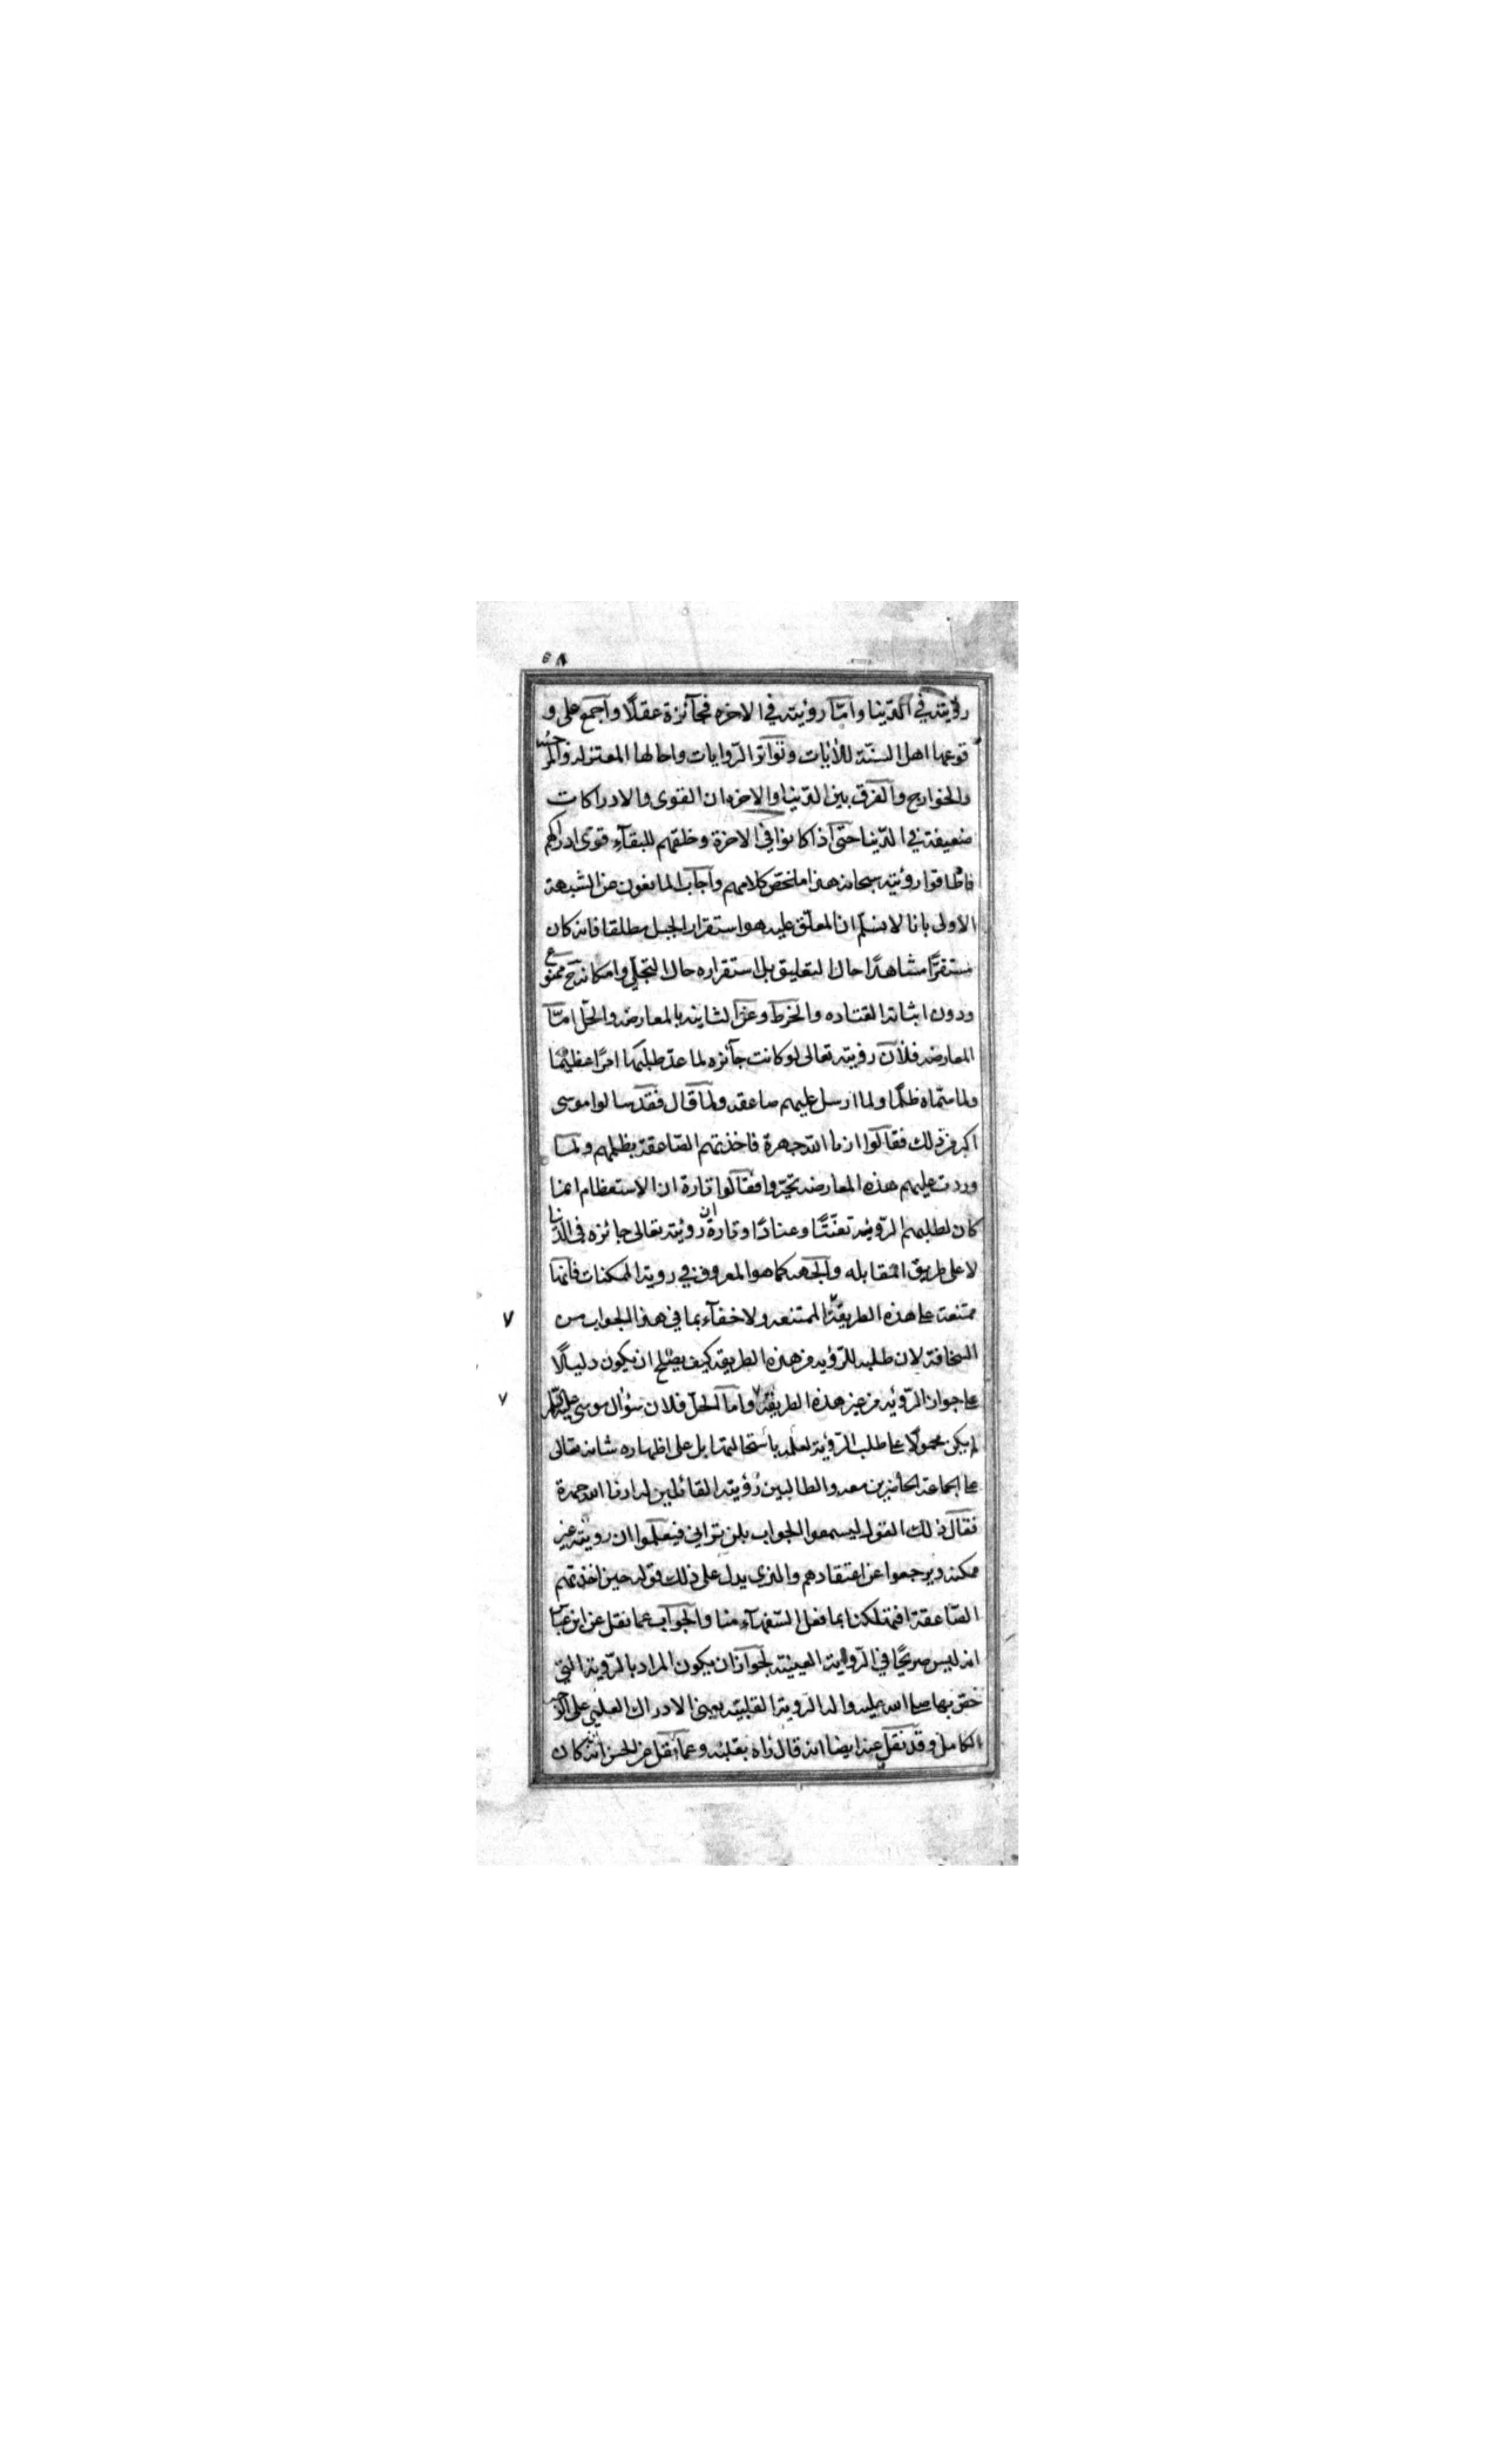 ٥٨
رؤيته في الدّنيا وامّا رؤيته في الاخره فجآئزة عقلًا وآجمع على و
قوعها اهل السنّة للأيات وتواتر الرّوايات واحالها المعتزله والمرجئه
والخوارج والفرق بين الدّنيا والاخره ان القوى والادراكات
ضعيفة في الدّنيا حتى اذا كانوا في الاخرة وخلقهم للبقآء قوّى ادراكهم
فاطاقوا رؤيته سبحانه هذا ملخّص كلامهم وآجاب المانعون عن الشبهة
الاولى بانا لا نسلّم ان المعلّق عليه هو استقرار الجبل مطلقا فانه كان
مستقرًّا مشاهدًا حال التعليق بل استقراره حال التجلّي وامكانه ح ممنوع
ودون اثباته القتاده والخرط وعن الثانيه بالمعارضه والحلّ امّا
المعارضه فلآن رؤيته تعالى لو كانت جآئزه لما عدّ طلبها امرًا عظيمًا
ولما سمّاه ظلمًا ولما ارسل عليهم صاعقه ولما قال فقد سالوا موسى
اكبر من ذلك فقالوا ارنا الله جهرة فاخذتهم الصّاعقة بظلمهم ولما
وردت عليهم هذه المعارضه تحيّروا فقالوا تارة ان الاستعظام انما
كان لطلبهم الرّؤيه تعنّتًا وعنادًا وتارة ان رؤيته تعالى جائزه في الدّنيا
لا على طريق المقابله والجهه كما هو المعروف في رويه الممكنات فانّها
ممتنعة على هذه الطريقة الممتنعه ولا خفآء بما في هذا الجواب من
السخافة لان طلبه للرّؤيه من هذه الطريقه كيف يصلح ان يكون دليلًا
على جواز الرّؤيه من غير هذه الطريقه وامّا الحلّ فلان سؤال موسى عليه السّلم
لم يكن محمولًا على طلب الرّؤية لعلمه باستحالتها بل على اظهاره شانه تعالى
على الجماعة الحاضرين معه والطالبين رؤيته القائلين له ارنا الله جهرة
فقال ذلك القول ليسمعوا الجواب بلن تراني فيعلموا ان رويته غير
ممكنه ويرجعوا عن اعتقادهم والذي يدل على ذلك قوله حين اخذتهم
الصّاعقة افتهلكنا بما فعل السّفهآء منا والجواب عما نقل عن ابن عبّاس
انه ليس صريحًا في الرّواية العينيّة لجواز ان يكون المراد بالرّوية التي
خصّ بها صلى الله عليه واله الرّوية القلبيّة بمعنى الادراك العلمي على الوجه
الكامل وقد نقل عنه ايضا انه قال رآه بقلبه وعما نقل عن الحسن انّه كان